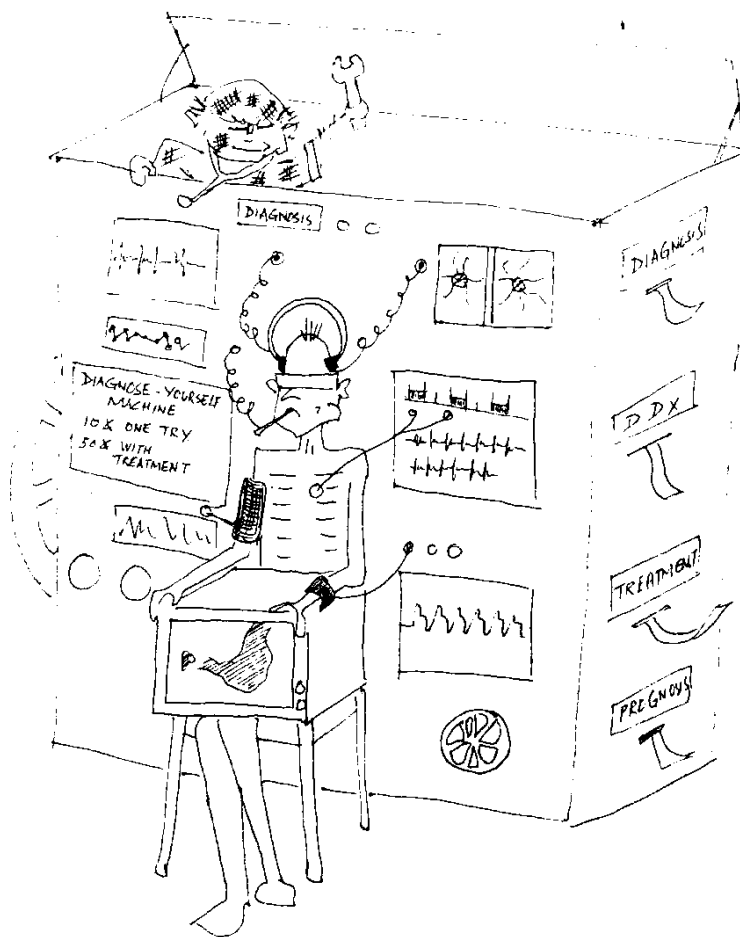 DIAGNOSIS
DIAGNOSE-YOURSELF
MACHINE
10¢ ONE TRY
50¢ WITH
TREATMENT
DIAGNOSIS
DDX
TREATMENT
PREGNOSIS